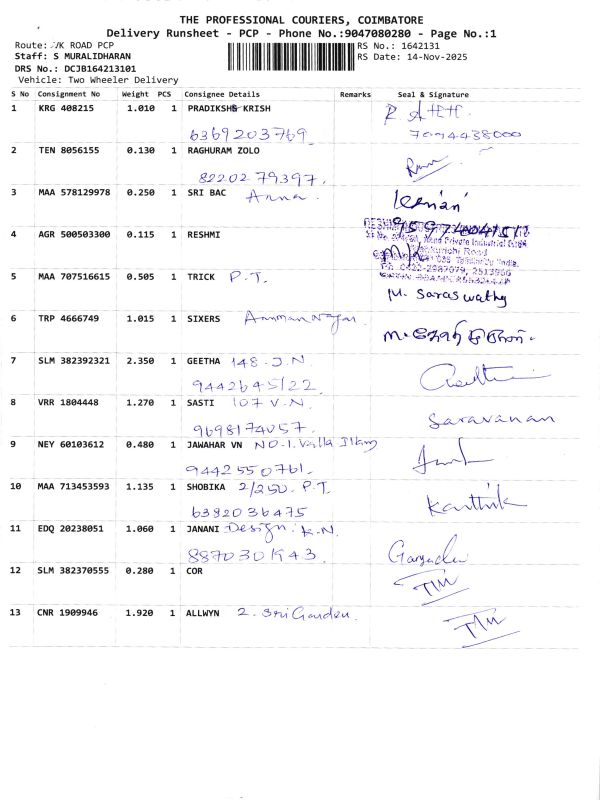 THE PROFESSIONAL COURIERS, COIMBATORE
Delivery Runsheet - PCP - Phone No.:9047080280 - Page No.:1
Route: VK ROAD PCP
RS No.: 1642131
Staff: S MURALIDHARAN
RS Date: 14-Nov-2025
DRS No.: DCJB164213101
Vehicle: Two Wheeler Delivery
S No Consignment No Weight PCS Consignee Details Remarks Seal & Signature
1 KRG 408215 1.010 1 PRADIKSHE KRISH
6369203769 7094438000
2 TEN 8056155 0.130 1 RAGHURAM ZOLO
8220279397.
3 MAA 578129978 0.250 1 SRI BAC Anna.
4 AGR 500503300 0.115 1 RESHMI
5 MAA 707516615 0.505 1 TRICK P.T.
M. Saraswathy
6 TRP 4666749 1.015 1 SIXERS Amman Nagar.
7 SLM 382392321 2.350 1 GEETHA 148-J.N.
9442645122
8 VRR 1804448 1.270 1 SASTI 107 V.N. Saravanan
9698174057.
9 NEY 60103612 0.480 1 JAWAHAR VN NO-1. Valla Illam
9442550761.
10 MAA 713453593 1.135 1 SHOBIKA 2/250. P.T. Karthik
6392036475
11 EDQ 20238051 1.060 1 JANANI Design. K.N.
12 SLM 382370555 0.280 1 COR
13 CNR 1909946 1.920 1 ALLWYN 2. Sri Garden.